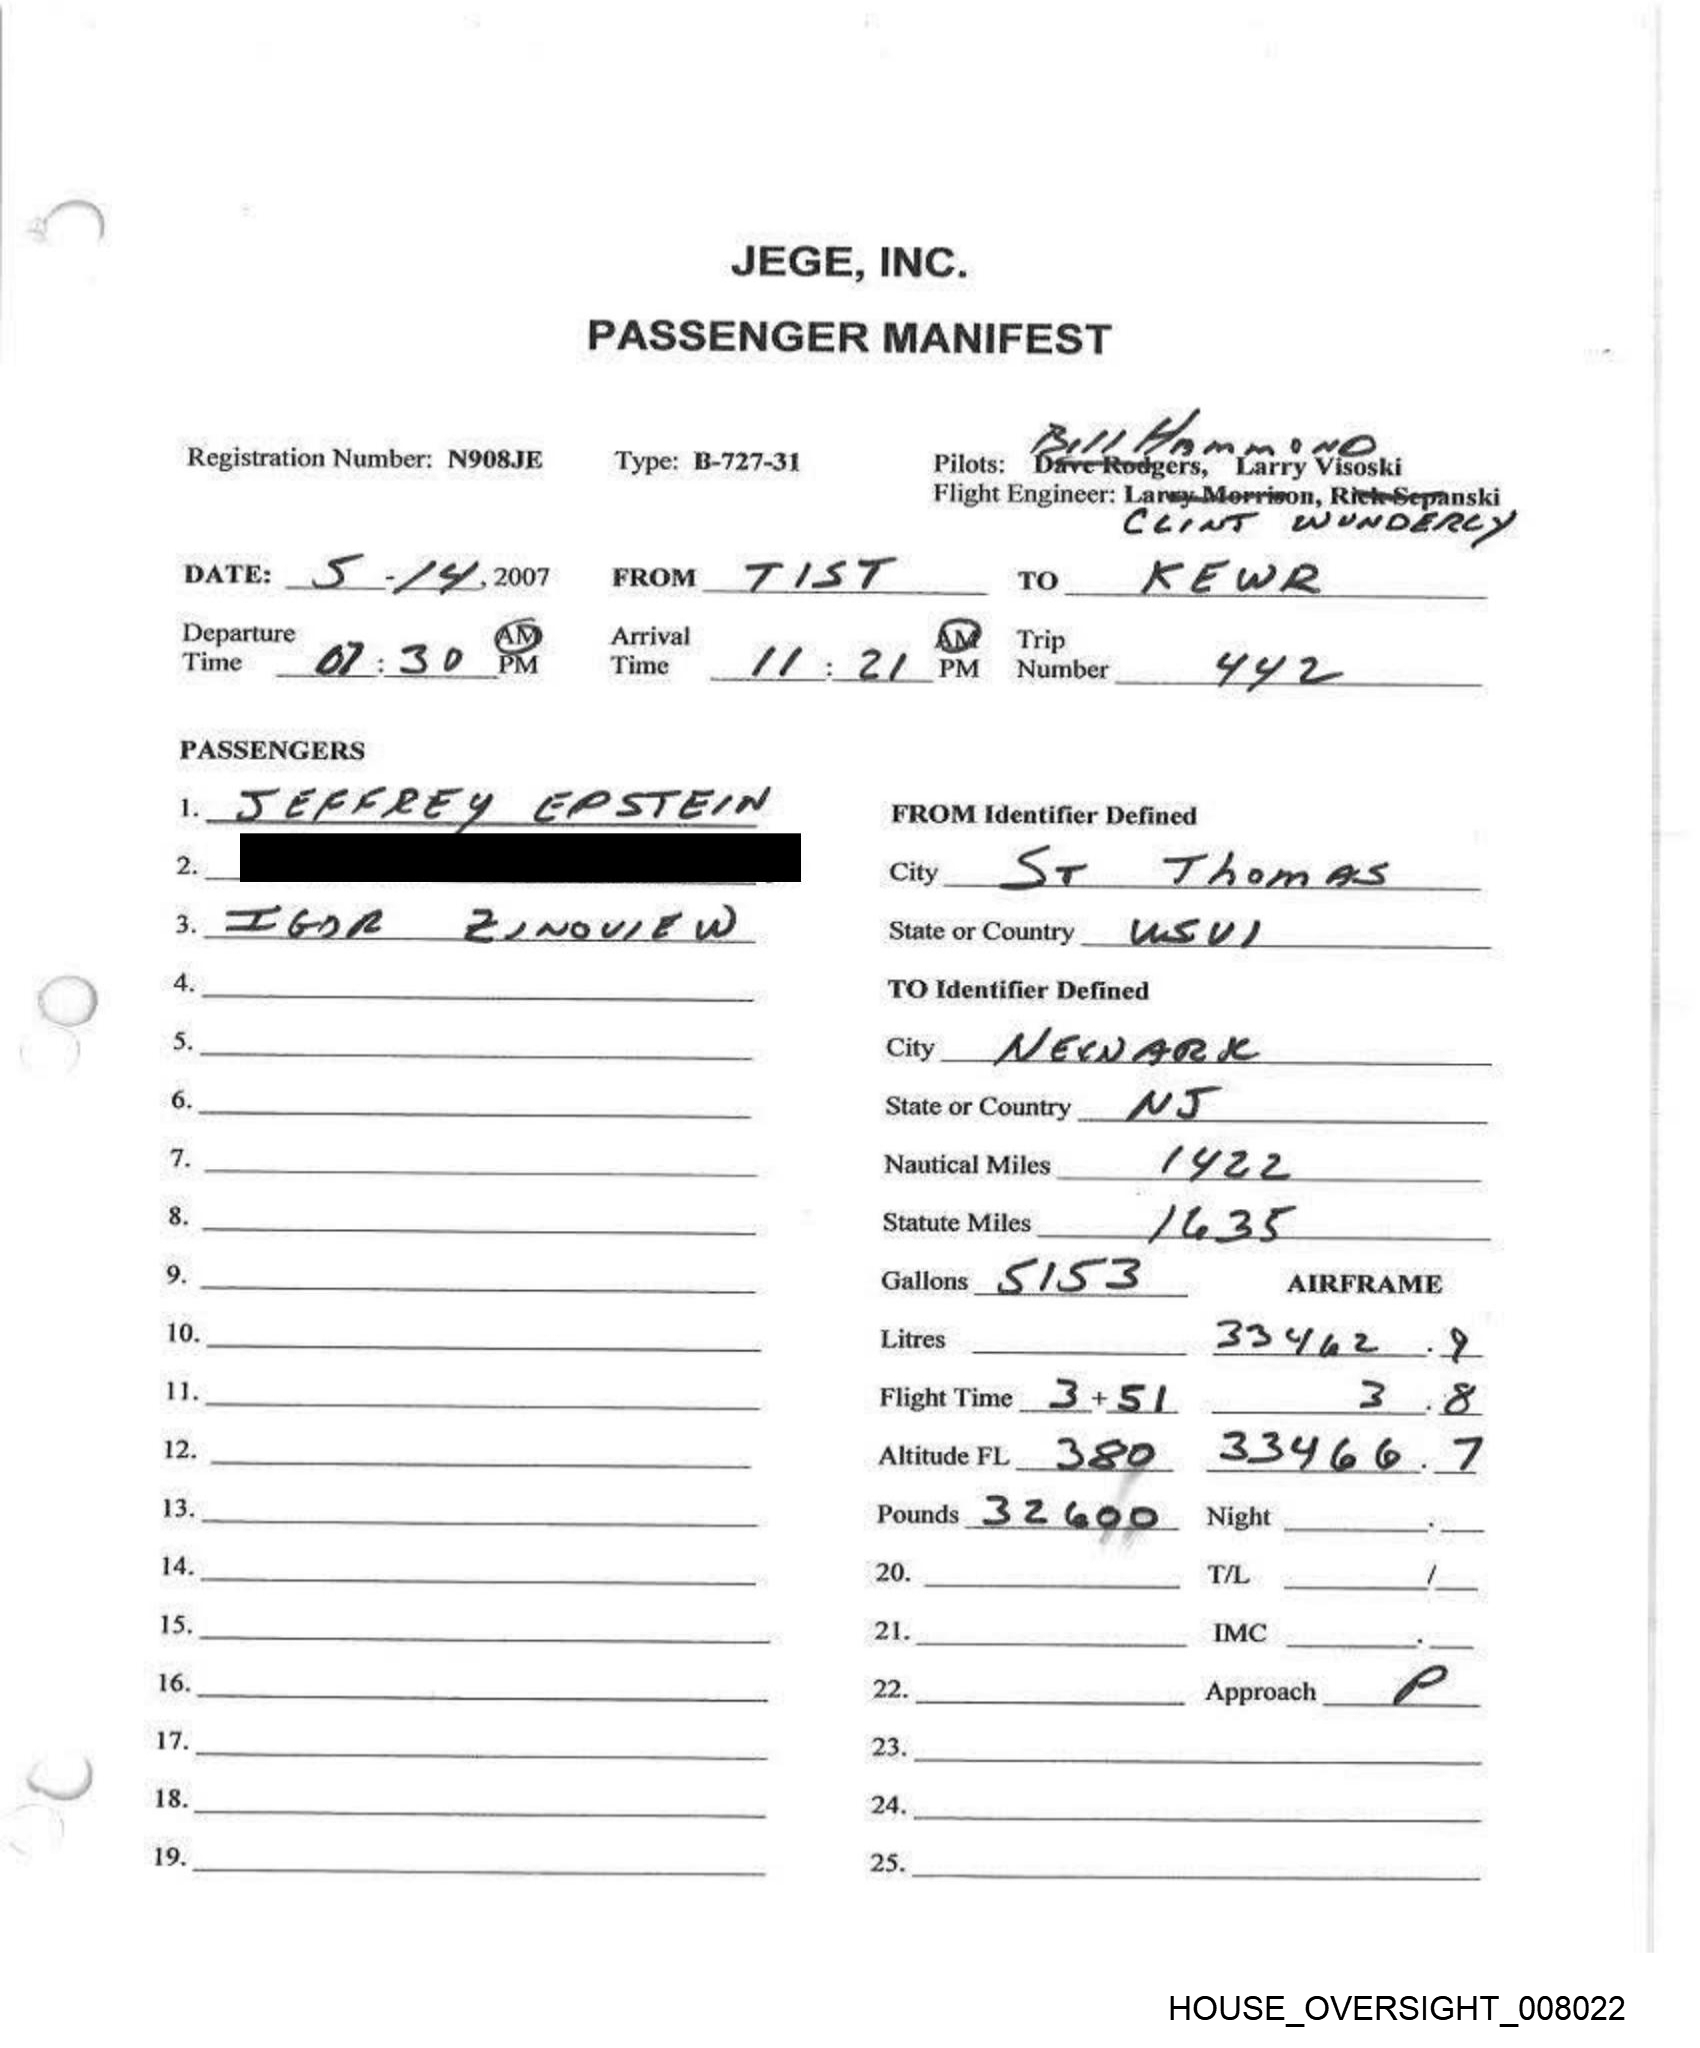 JEGE, INC.
PASSENGER MANIFEST
Bill Hammond
Registration Number: N908JE Type: B-727-31 Pilots: Dave Rodgers, Larry Visoski
Flight Engineer: Larry Morrison, Rick Sepanski
CLINT WUNDERLY
DATE: 5-14, 2007 FROM TIST TO KEWR
Departure Time 07:30 AM PM Arrival Time 11:21 AM PM Trip Number 442
PASSENGERS
1. JEFFREY EPSTEIN
FROM Identifier Defined
2.
City ST Thomas
3. IGOR ZINOVIEW
State or Country USVI
4.
TO Identifier Defined
5.
City NEWARK
6.
State or Country NJ
7.
Nautical Miles 1422
8.
Statute Miles 1635
9.
Gallons 5153 AIRFRAME
10.
Litres 33462.9
11.
Flight Time 3+51 3.8
12.
Altitude FL 380 33466.7
13.
Pounds 32600 Night .
14.
20. T/L /
15.
21. IMC .
16.
22. Approach P
17.
23.
18.
24.
19.
25.
HOUSE_OVERSIGHT_008022